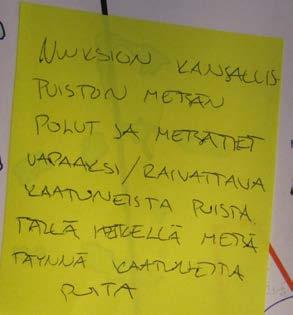 NUUKSION KANSALLIS
PUISTON METSÄN
POLUT JA METSÄTIET
VAPAAKSI/RAIVATTAVA
KAATUNEISTA PUISTA.
TÄLLÄ HETKELLÄ METSÄ
TÄYNNÄ KAATUNEITA
PUITA